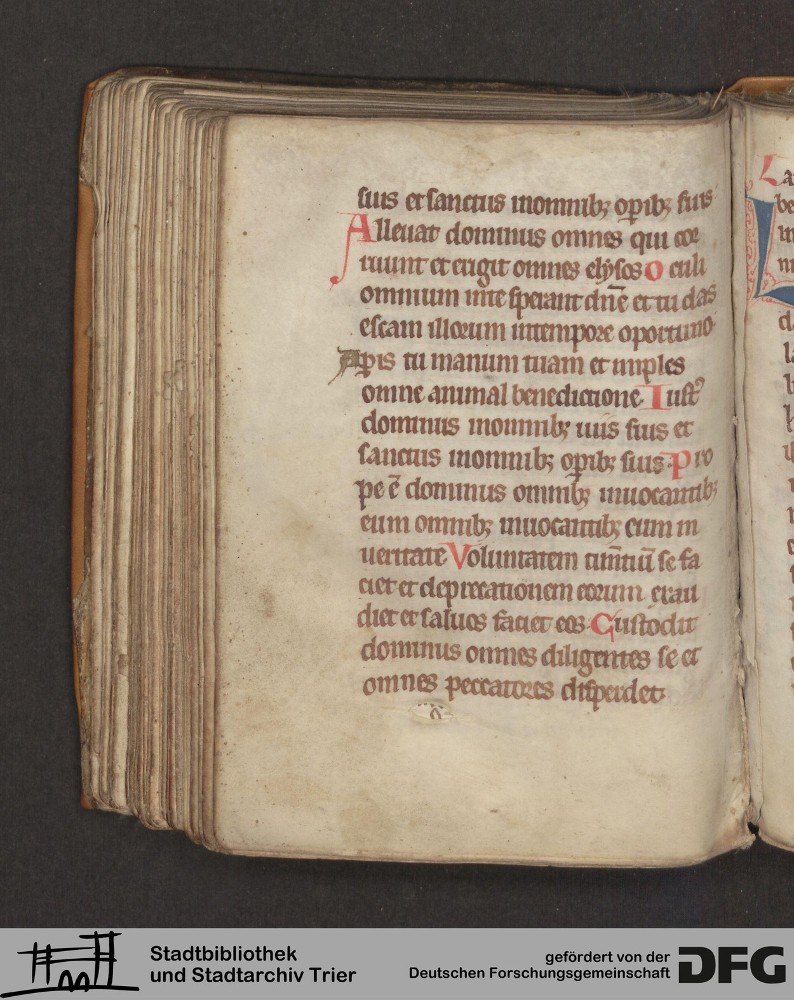 suis et sanctus inomnibꝫ oꝑibꝫ suis
Alleuat dominus omnes qui cor
ruunt et erigit omnes elysos Oculi
omnium inte sperant dn̄e et tu das
escam illorum intempore oportuno
Apis tu manum tuam et imples
omne animal benedictione Iustꝰ
dominus inomnibꝫ uiis suis et
sanctus inomnibꝫ oꝑibꝫ suis Pro
pe ē dominus omnibꝫ inuocantibꝫ
eum omnibꝫ inuocantibꝫ eum in
ueritate Voluntatem timētiū se fa
ciet et deprecationem eorum exau
diet et saluos faciet eos Custodit
dominus omnes diligentes se et
omnes peccatores disperdet
La
be
Stadtbibliothek
und Stadtarchiv Trier
gefördert von der
Deutschen Forschungsgemeinschaft
DFG